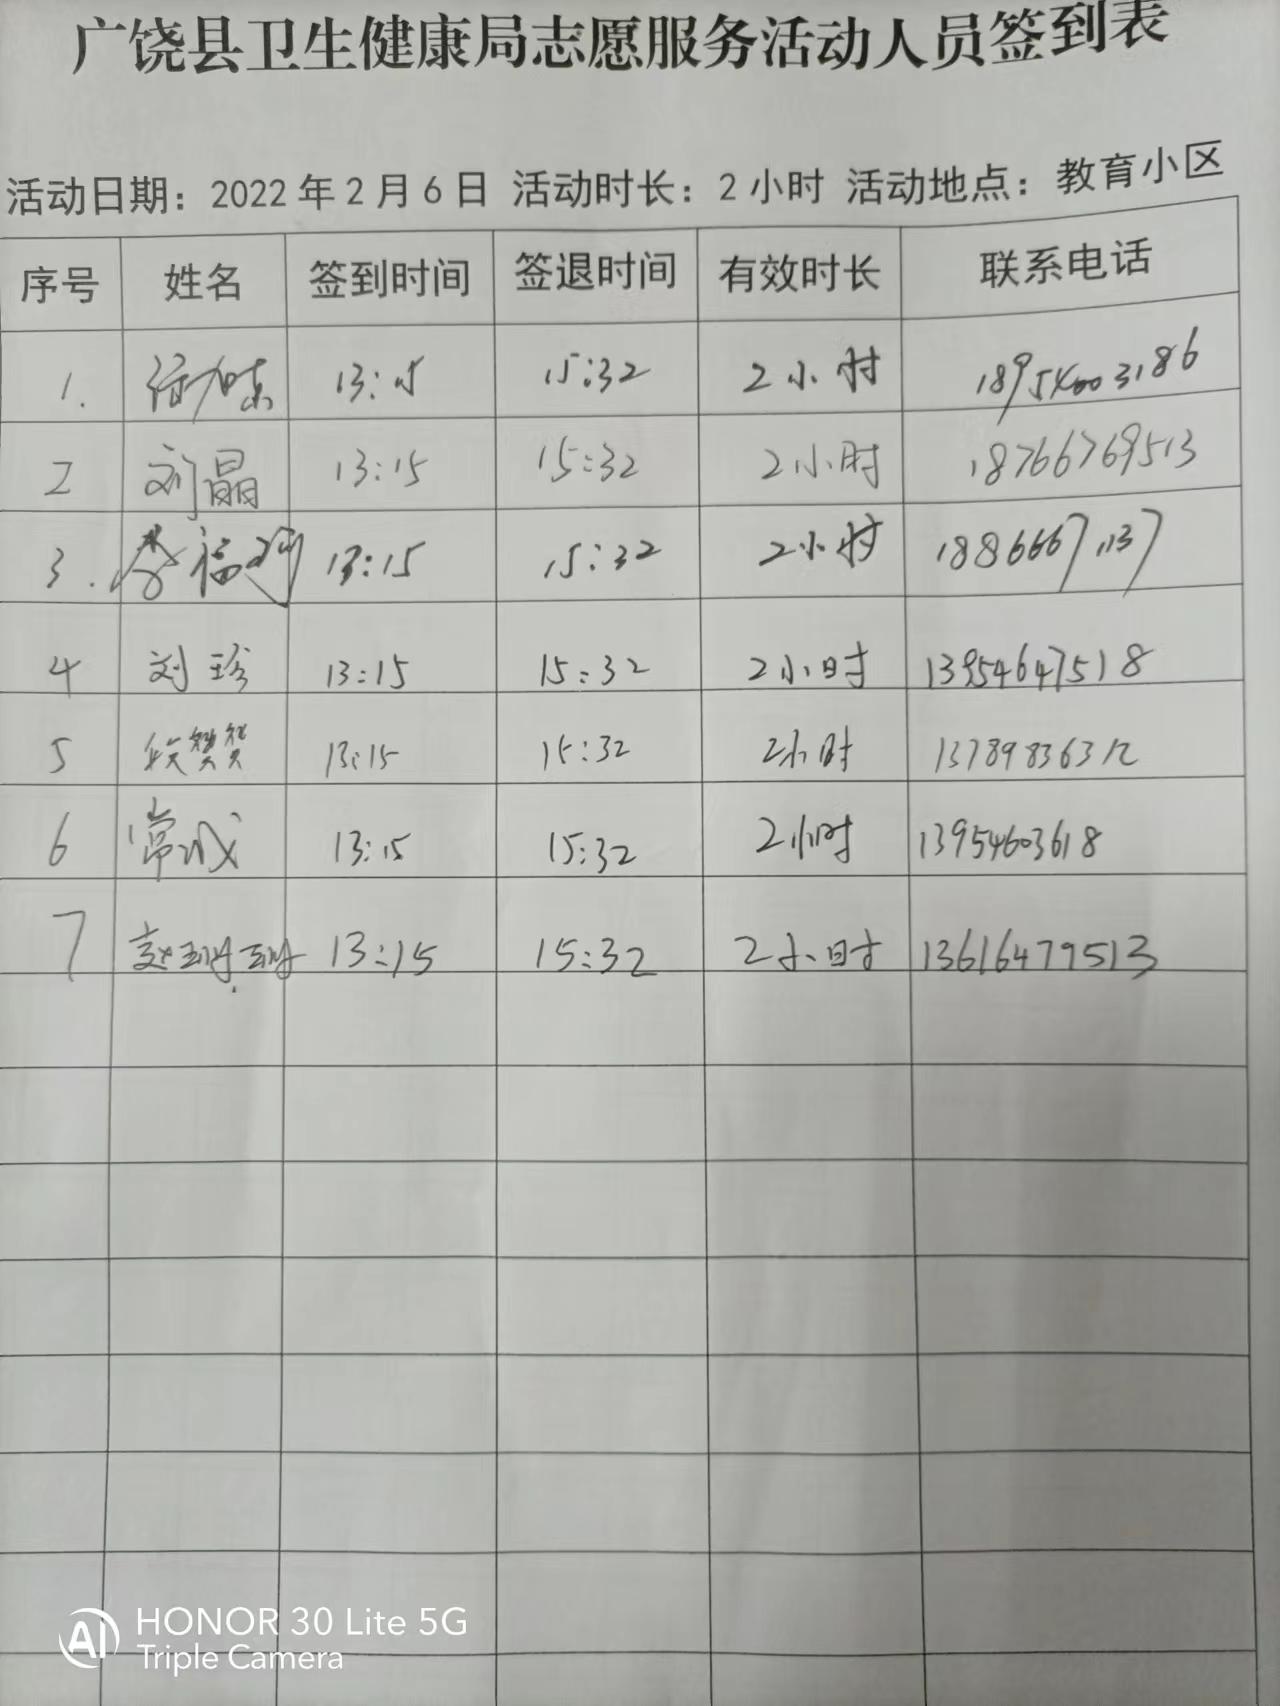 广饶县卫生健康局志愿服务活动人员签到表
活动日期：2022年2月6日 活动时长：2小时 活动地点：教育小区
序号 姓名 签到时间 签退时间 有效时长 联系电话
1. 13:15 15:32 2小时 18954003186
2 刘晶 13:15 15:32 2小时 18766769513
3. 李福 13:15 15:32 2小时 18866671137
4 刘珍 13:15 15:32 2小时 13954647518
5 段赞赞 13:15 15:32 2小时 13789836312
6 常成 13:15 15:32 2小时 13954603618
7 赵珊珊 13:15 15:32 2小时 13616479513
AI HONOR 30 Lite 5G
Triple Camera